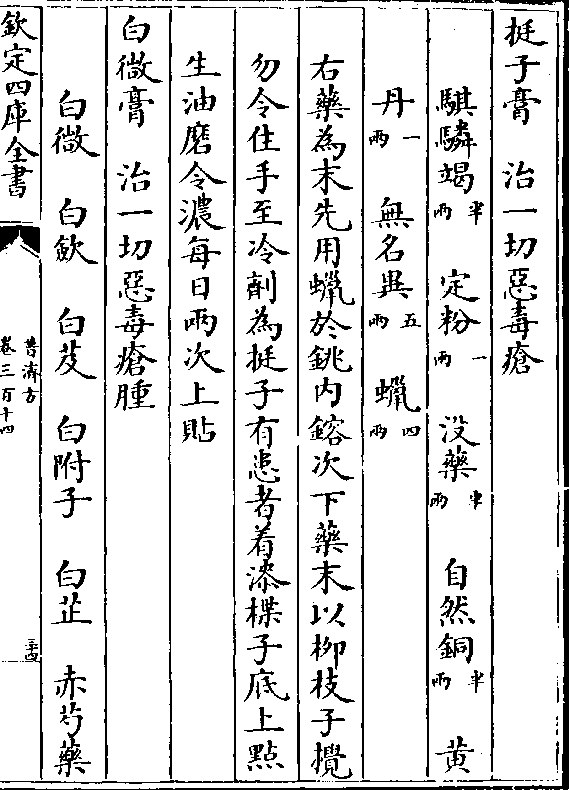 挺子膏　治一切惡毒瘡
騏驎竭半兩　定粉一兩　没藥半兩　自然銅半兩　黄
丹一兩　無名異五兩　蠟四兩
右藥為末先用蠟於銚内鎔次下藥末以柳枝子攪
勿令住手至冷劑為挺子有患者着漆楪子底上點
生油磨令濃每日兩次上貼
白㣲膏　治一切惡毒瘡腫
白㣲　白歛　白芨　白附子　白芷　赤芍藥
欽定四庫全書
普濟方
卷三百十四
三十四